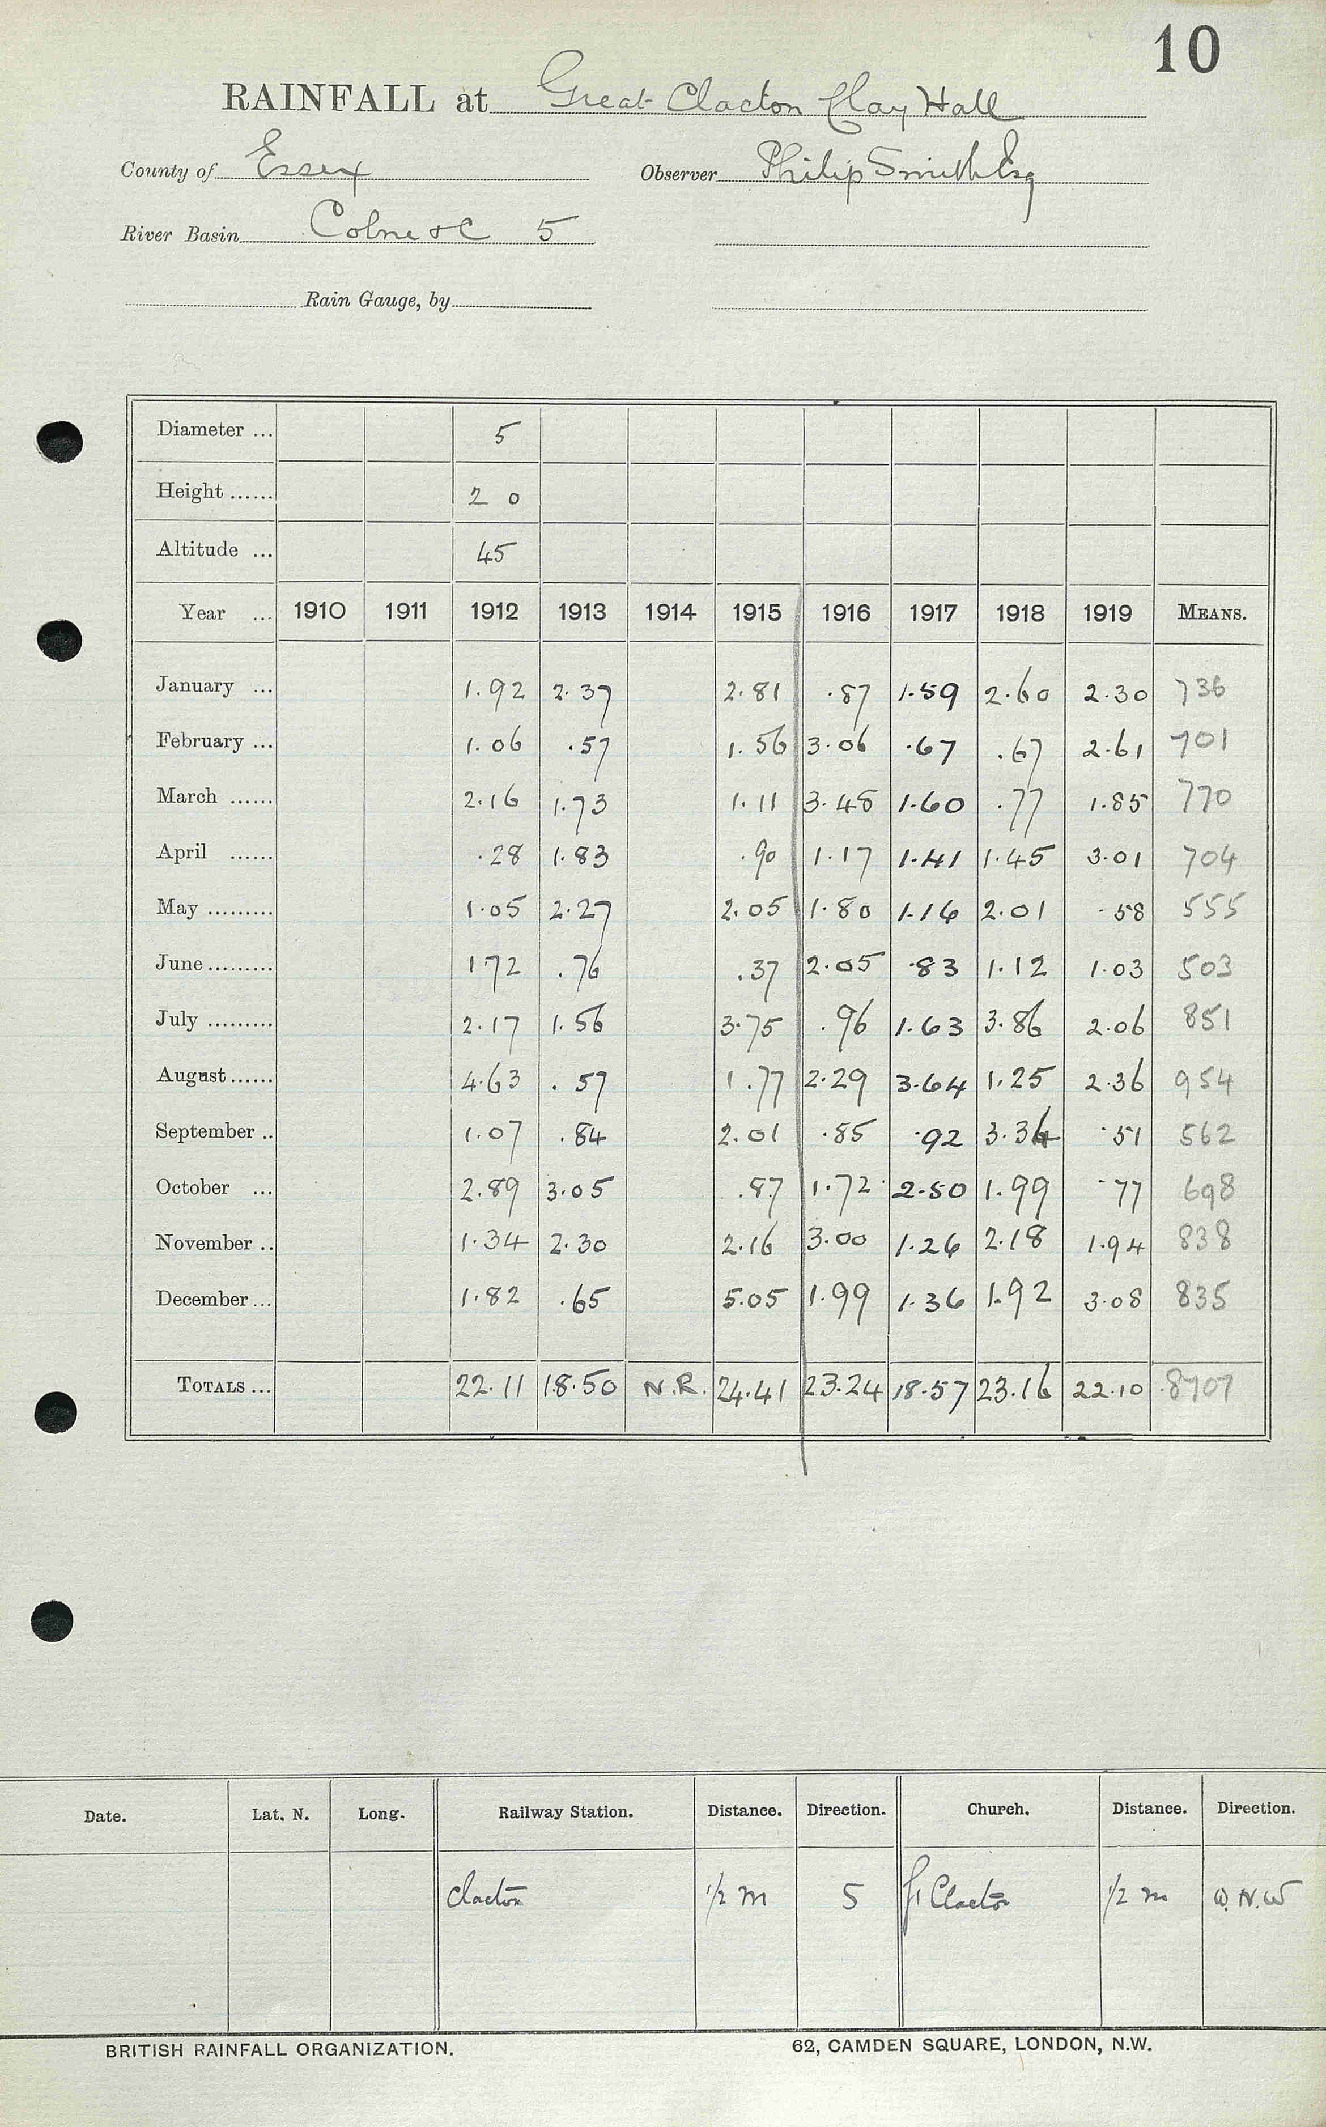 10
RAINFALL at Great Clacton Clay Hall
County of Essex Observer Philip Smith Esq
River Basin Colne &c 5
Rain Gauge, by
Diameter ... 5
Height ...... 2 0
Altitude ... 45
Year ... 1910 1911 1912 1913 1914 1915 1916 1917 1918 1919 MEANS.
January ... 1.92 2.37 2.81 .87 1.59 2.60 2.30 736
February ... 1.06 .57 1.56 3.06 .67 .67 2.61 701
March ...... 2.16 1.73 1.11 3.48 1.60 .77 1.85 770
April ...... .28 1.83 .90 1.17 1.41 1.45 3.01 704
May ......... 1.05 2.27 2.05 1.80 1.16 2.01 .58 555
June ......... 172 .76 .37 2.05 .83 1.12 1.03 503
July ......... 2.17 1.56 3.75 .96 1.63 3.86 2.06 851
August ...... 4.63 .57 1.77 2.29 3.64 1.25 2.36 954
September .. 1.07 .84 2.01 .85 .92 3.34 .51 562
October ... 2.89 3.05 .87 1.72 2.50 1.99 .77 698
November .. 1.34 2.30 2.16 3.00 1.26 2.18 1.94 838
December ... 1.82 .65 5.05 1.99 1.36 1.92 3.08 835
TOTALS ... 22.11 18.50 N.R. 24.41 23.24 18.57 23.16 22.10 8707
Date. Lat. N. Long. Railway Station. Distance. Direction. Church. Distance. Direction.
Clacton 1/2 m S Gt Clacton 1/2 m W.N.W
BRITISH RAINFALL ORGANIZATION. 62, CAMDEN SQUARE, LONDON, N.W.